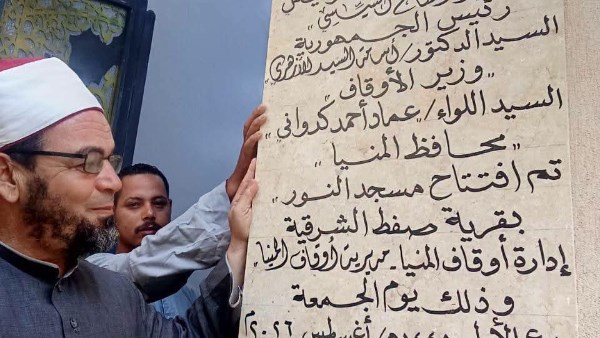 السيسي"
رئيس الجمهورية
السيد الدكتور/ أسامة السيد الأزهري"
"وزير الأوقاف"
السيد اللواء/ "عماد أحمد كدواني"
"محافظ المنيا"
تم افتتاح مسجد النور"
بقرية صفط الشرقية
إدارة أوقاف المنيا - مديرية أوقاف المنيا
وذلك يوم الجمعة
أغسطس ٢٠٢٦م